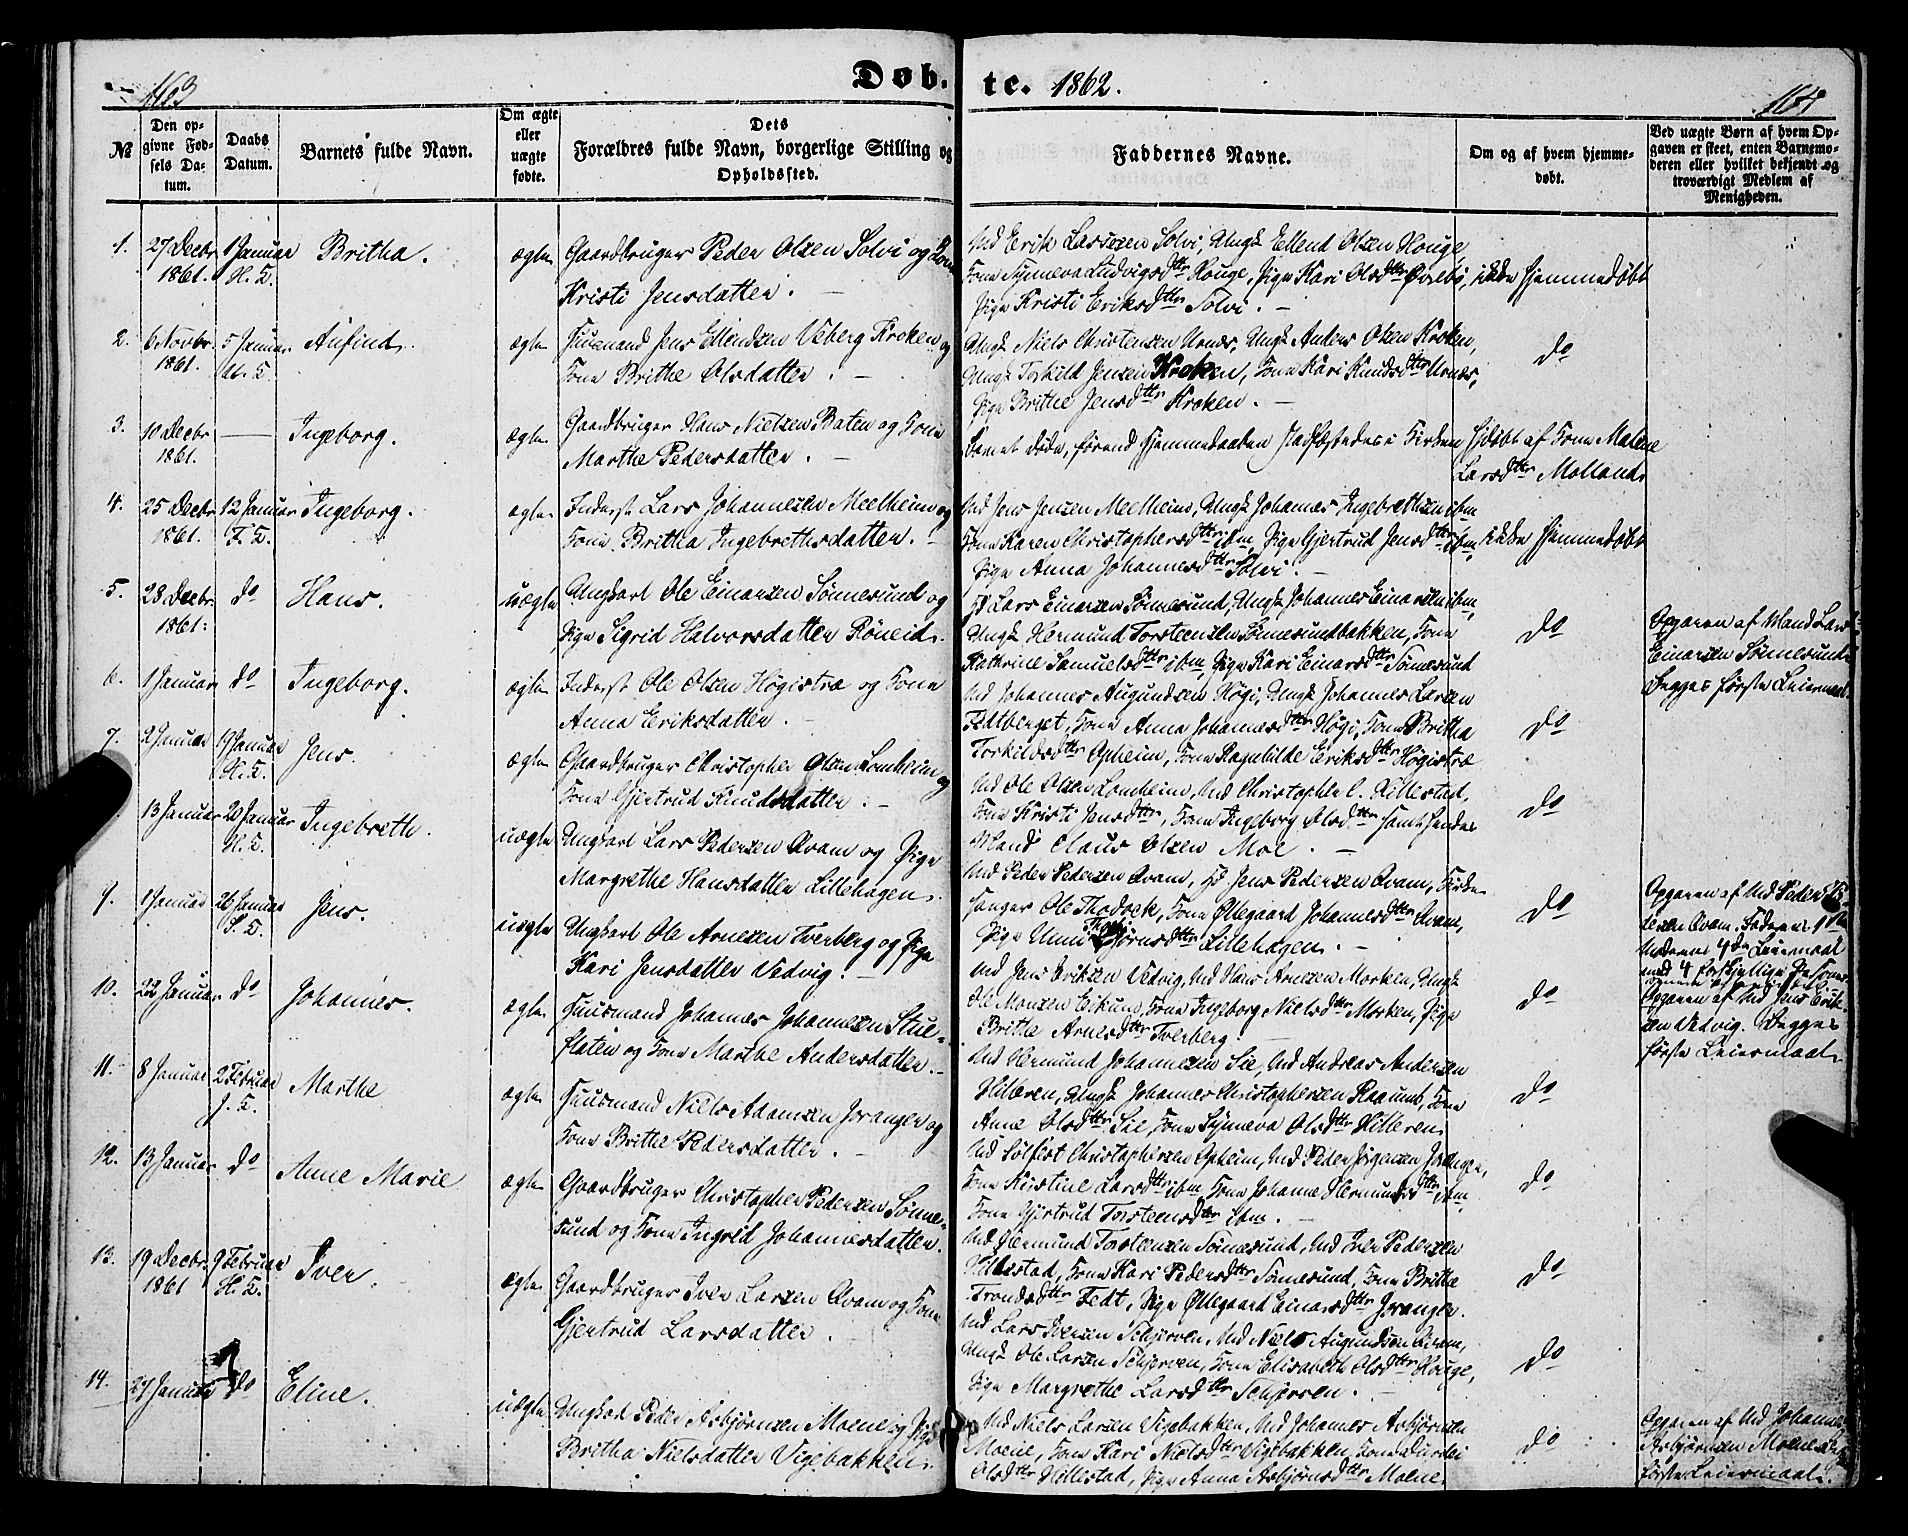 163
Døb-te. 1862.
164
№
Den opgivne Fødsels Datum.
Daabs Datum.
Barnets fulde Navn.
Om ægte eller uægte fødte.
Dets Forældres fulde Navn, borgerlige Stilling og Opholdssted.
Faddernes Navne.
Om og af hvem hjemmedøbt.
Ved uægte Børn af hvem Opgaven er skeet, enten Barnemoderen eller hvilket bekjendt og troværdigt Medlem af Menigheden.
1. 27 Decbr 1861. 1 Januar H. K. Britha. ægte
Gaardbruger Peder Olsen Solvi og Kone
Kristi Jensdatter.
Md Erik Lassesen Solvi, Ungk Ellend Olsen Houge,
Kone Synneva Ludvigsdttr Houge, Pige Kari Olsdttr Øvrebø,
Pige Kristi Eriksdttr Solvi.
ikke hjemmedøbt
2. 6 Novbr 1861. 5 Januar U. K. Anfind. ægte
Huusmand Jens Ellendsen Veberg Kroken og
Kone Brithe Olsdatter.
Ungk Niels Christensen Urnæs, Ungk Anders Olsen Kroken,
Ungk Torkild Jensen Kroken, Kone Kari Knudsdttr Urnæs,
Pige Brithe Jensdttr Kroken.
do
3. 10 Decbr 1861. — Ingeborg. ægte
Gaardbruger Hans Nielsen Baten og Kone
Marthe Pedersdatter.
Barnet døde, førend Hjemmedaaben stadfæstedes i Kirken
Hjdøbt af Kone Malene
Larsdttr Mollands
4. 25 Decbr 1861. 12 Januar F. K. Ingeborg. ægte
Inderst Lars Johannesen Meelheim og
Kone Britha Ingebrethsdatter.
Md Jens Jensen Meelheim, Ungk Johannes Ingebrethsen ibm
Kone Karen Christophersdttr ibm, Pige Gjertrud Jensdttr ibm,
Pige Anna Johannesdttr Solvi.
ikke hjemmedøbt
5. 28 Decbr 1861. do Hans. uægte
Ungkarl Ole Einarsen Sønnesund og
Pige Sigrid Halvorsdatter Röneid.
Lars Einarsen Sønnesund, Ungk Johannes Einarsen ibm,
Ungk Hermund Torsteensen Sønnesundbakken, Kone
Kathrine Samuelsdttr ibm, Pige Kari Einarsdttr Sønnesund
do
Opgaven af Mand Lars
Einarsen Sønnesund.
Begges første Leiermaal.
6. 1 Januar do Ingeborg. ægte
Inderst Ole Olsen Høgistræ og Kone
Anna Eriksdatter.
Md Johannes Augundsen Høgi, Ungk Johannes Larsen
Fedtberget, Kone Anna Johannesdttr Høgi, Kone Britha
Torkildsdttr Opheim, Kone Ragnhilde Eriksdttr Høgistræ
do
7. 2 Januar 19 Januar H. K. Jens. ægte
Gaardbruger Christopher Olsen Lomheim og
Kone Gjertrud Knudsdatter.
Md Ole Olsen Lomheim, Md Christopher C. Hillestad,
Kone Kristi Jensdttr, Kone Ingeborg Olsdttr samt hendes
Mand Claus Olsen Moe.
do
13 Januar 20 Januar H. K. Ingebreth. uægte
Ungkarl Lars Pedersen Qvam og Pige
Margrethe Hansdatter Lillehagen.
Md Peder Pedersen Qvam, Jens Pedersen Qvam, Kirke-
sanger Ole Thodock, Kone Øllegaard Johannesdttr Qvam,
Pige Unni Lillehagen.
do
Opgaven af Md Peder Pe-
dersen Qvam. Faderens 1ste
Moderens 4de Leiermaal
med 4 forskjellige Personer
9. 1 Januar 26 Januar S. K. Jens. uægte
Ungkarl Ole Arnesen Tverberg og Pige
Kari Jensdatter Vedvig.
Md Jens Eriksen Vedvig, Md Hans Arnesen Morken, Ungk
Ole Monsen Eikum, Kone Ingeborg Nielsdttr Morken, Pige
Brithe Arnesdttr Tverberg.
do
Opgaven af Md Jens Erik-
sen Vedvig. Begges
første Leiermaal.
10. 22 Januar do Johannes. ægte
Huusmand Johannes Johannesen Stue-
flaten og Kone Marthe Andersdatter.
Md Hermund Johannesen Sie, Md Andreas Andersen
Hilleren, Ungk Johannes Christophersen Raaum, Kone
Anne Olsdttr Sie, Kone Synneva Olsdttr Hilleren.
do
11. 8 Januar 2 Februar J. K. Marthe ægte
Huusmand Niels Adamsen Joranger og
Kone Brithe Pedersdatter.
Md Sølfest Christophersen Opheim, Md Peder Jørgensen Joranger,
Kone Kristine Larsdttr ibm, Kone Johanne Hermundsdttr ibm,
Kone Gjertrud Torsteensdttr ibm.
do
12. 13 Januar do Anne Marie ægte
Gaardbruger Christopher Pedersen Sønne-
sund og Kone Ingrid Johannesdatter.
Md Hermund Torsteensen Sønnesund, Md Iver Pedersen
Hillestad, Kone Kari Pedersdttr Sønnesund, Kone Brithe
Trondsdttr Fedt, Pige Øllegaard Einarsdttr Joranger.
do
13. 19 Decbr 1861 9 Februar H. K. Iver. ægte
Gaardbruger Iver Larsen Qvam og Kone
Gjertrud Larsdatter.
Md Lars Iversen Schjerven, Md Niels Augundsen Qvam,
Ungk Ole Larsen Schjerven, Kone Elisabeth Olsdttr Houge,
Pige Margrethe Larsdttr Schjerven.
do
14. 27 Januar do Eline. uægte
Ungkarl Peder Asbjørnsen Moene og Pige
Britha Nielsdatter Vigebakken.
Md Niels Larsen Vigebakken, Md Johannes Asbjørnsen
Moene, Kone Kari Nielsdttr Vigebakken, Kone Durdei
Olsdttr Hillestad, Pige Anna Asbjørnsdttr Moene
do
Opgaven af Md Johannes
Asbjørnsen Moene
første Leiermaal.